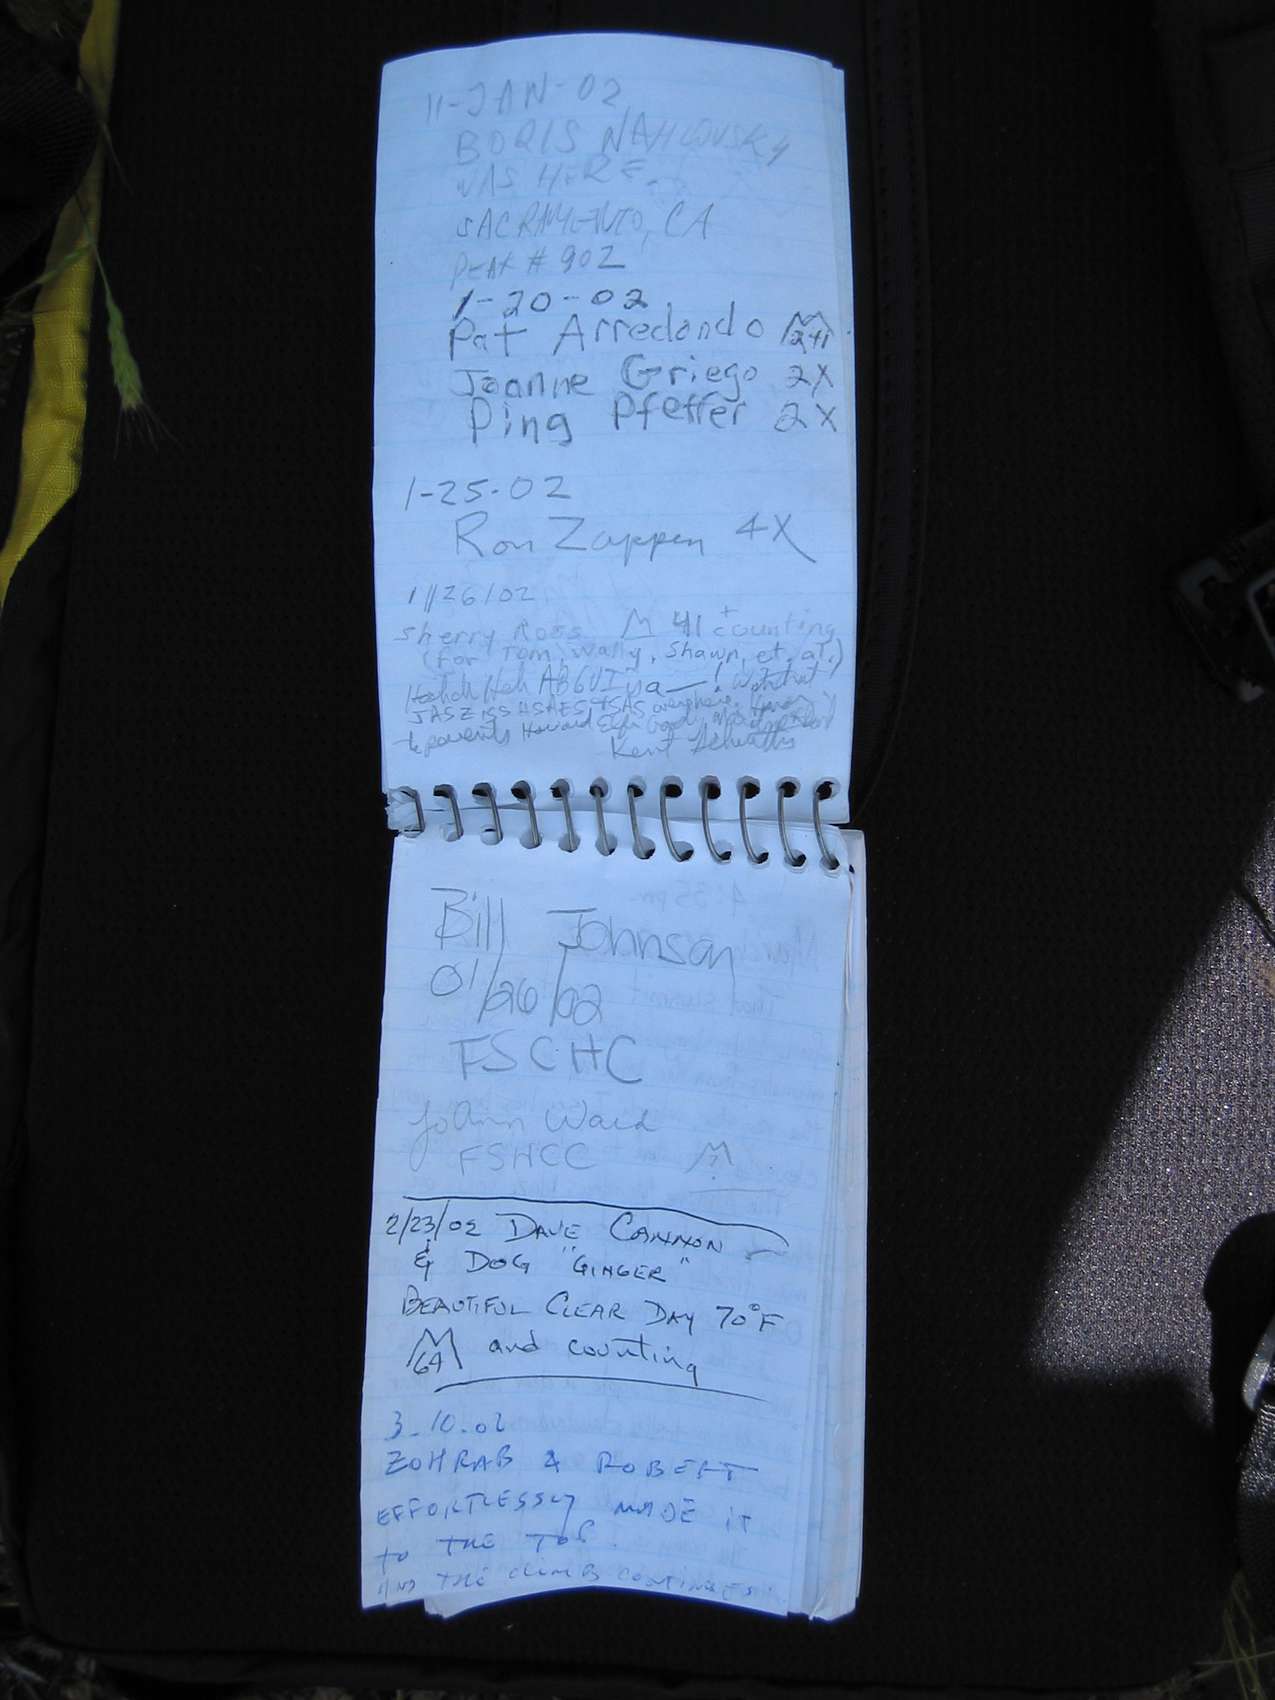 11-JAN-02
BORIS NAHLOVSKY
WAS HERE
SACRAMENTO, CA
PEAK # 902
1-20-02
Pat Arredondo M 2+1
Joanne Griego 2X
Ping Pfeffer 2X
1-25-02
Ron Zappen 4X
1/26/02
Sherry Ross M 41 + counting
(for Tom, Wally, Shawn, et. al.)
Heh
Howard
Kent
Bill Johnson
01/26/02
FSCHC
JoAnn Ward
FSHCC M ?
2/23/02 DAVE CANNON
& DOG "GINGER"
BEAUTIFUL CLEAR DAY 70°F
M 64 and counting
3.10.02
ZOHRAB & ROBERT
EFFORTLESSLY MADE IT
TO THE TOP.
AND THE CLIMB CONTINUES